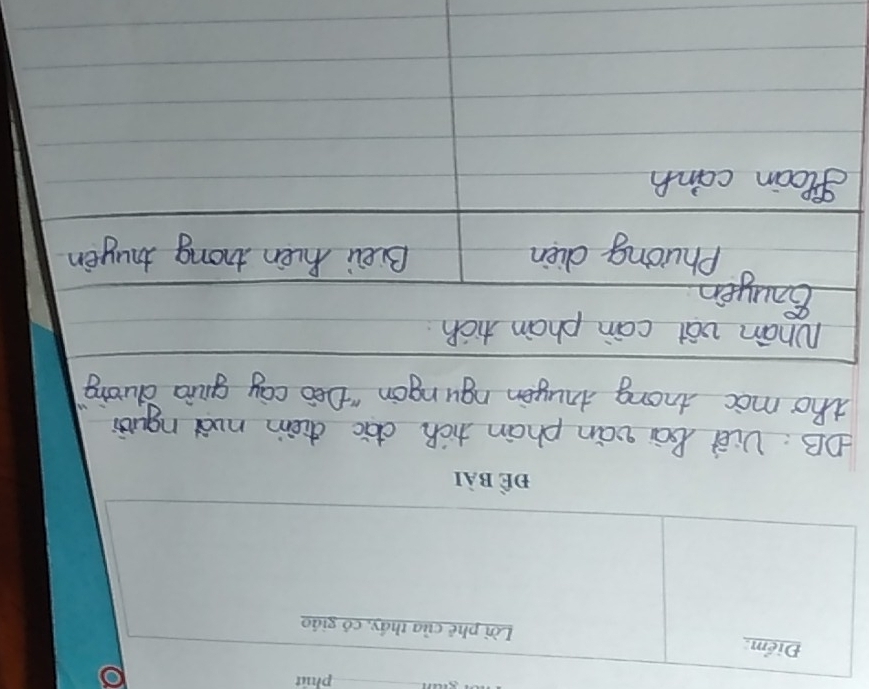 phút
Điểm:
Lời phê của thầy, cô giáo
ĐỀ BÀI
ĐB: Viết bài văn phân tích đặc điểm nvật người
thợ mộc trong truyện ngụ ngôn "Đẽo cày giữa đường"
Nhân vật cần phân tích:
Truyện:
Phương diện
Biểu hiện trong truyện
Hoàn cảnh